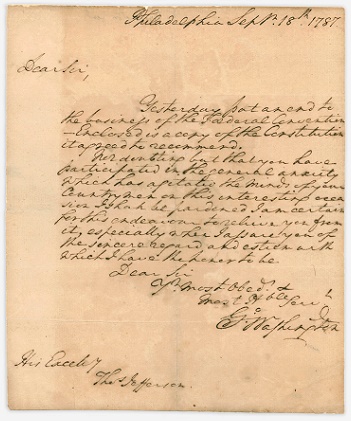 Philadelphia Sepr. 18th. 1787.
Dear Sir,
Yesterday put an end to
the business of the Fœderal Convention
– Enclosed is a copy of the Constitution
it agreed to recommend.
Not doubting but that you have
participated in the general anxiety
which has agitated the minds of your
Countrymen on this interesting occa-
sion I shall be pardoned I am certain
for this endeavour to relieve you from
it, especially when I assure you of
the sincere regard and esteem with
which I have the honor to be.
Dear Sir
Yr. most Obedt. &
most Hble Servt.
Go. Washington
His Excely
Thos. Jefferson.